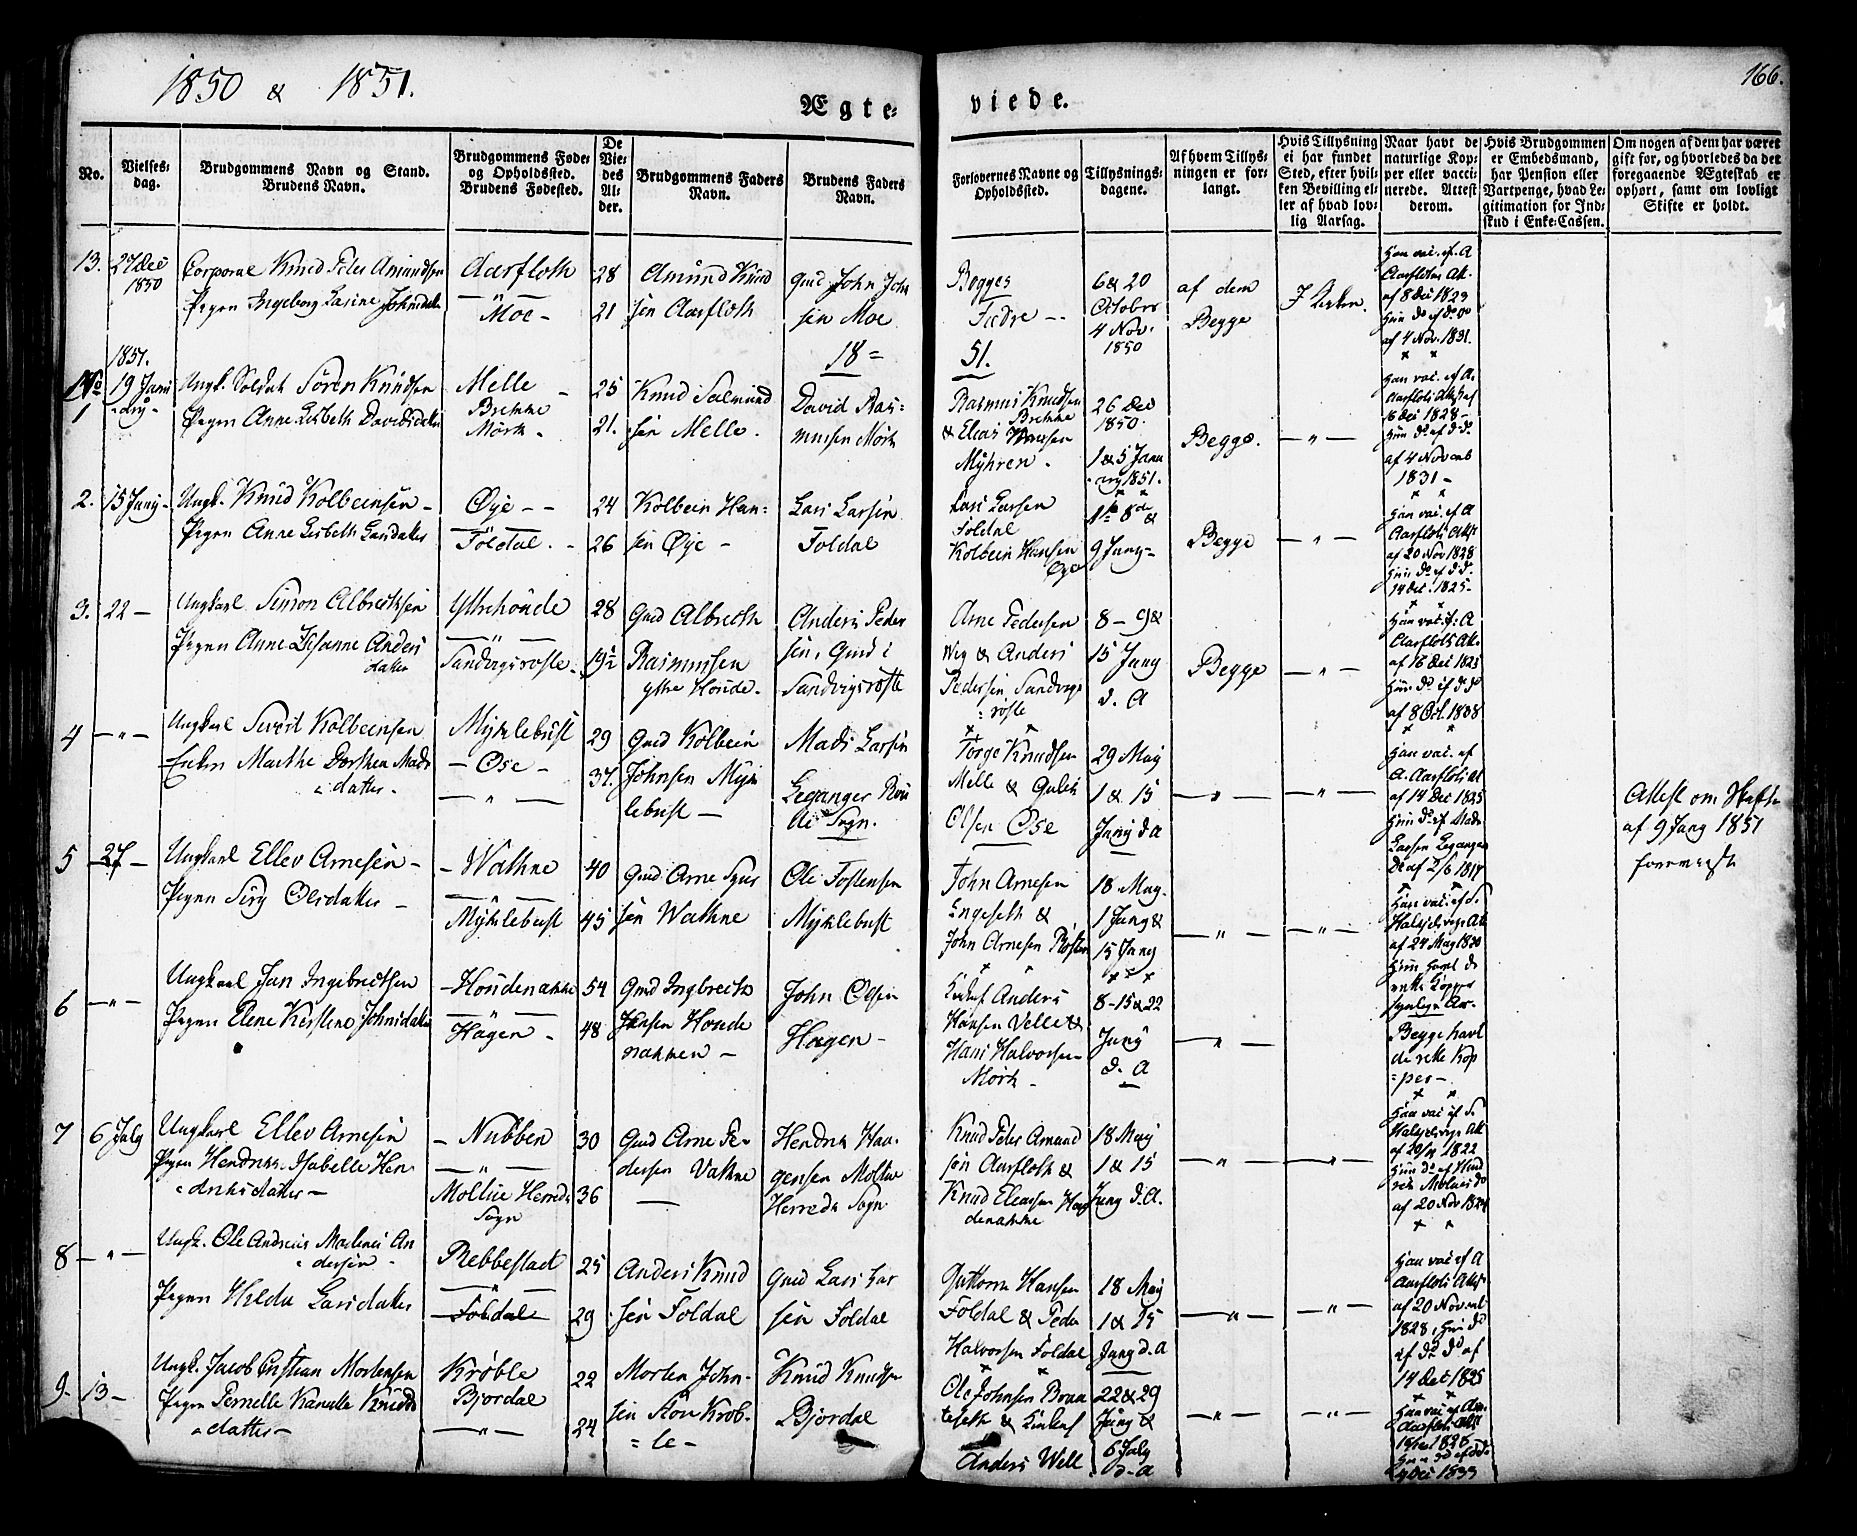 1850 & 1851.
Ægte-
viede.
166.
No.
Vielses-
dag.
Brudgommens Navn og Stand.
Brudens Navn.
Brudgommens Føde-
og Opholdssted.
Brudens Fødested.
De
Vie-
des
Al-
der.
Brudgommens Faders
Navn.
Brudens Faders
Navn.
Forlovernes Navne og
Opholdssted.
Tillysnings-
dagene.
Af hvem Tillys-
ningen er for-
langt.
Hvis Tillysning
ei har fundet
Sted, efter hvil-
ken Bevilling el-
ler af hvad lov-
lig Aarsag.
Naar havt de
naturlige Kop-
per eller vacci-
nerede. Attest
derom.
Hvis Brudgommen
er Embedsmand,
har Pension eller
Vartpenge, hvad Le-
gitimation for Ind-
skud i Enke-Cassen.
Om nogen af dem har været
gift før, og hvorledes da det
foregaaende Ægteskab er
ophørt, samt om lovligt
Skifte er holdt.
13. 27 Dec
1850
Corporal Knud Peter Amundsen
Pigen Ingeborg Lasine Johnsdatter
Aarfloth
— " —
Moe -
28
21
Amund Knud
sen Aarfloth
Gmd John John
sen Moe
Begges
Fædre --
6 & 20
October
4 Nov.
1850
af dem
Begge
I Kirken.
Han vac. af A
Aarfloths Att.
af 8 Dec 1829
Hun do af do
af 4 Nov. 1831.
18 =
51.
1851.
No
1
19 Janu
-ary-
Ungk. Soldat Søren Knudsen
Pigen Anne Lisbeth Davidsdatter
Melle -
Brekke
Mørk -
25
21.
Knud Salmund
sen Melle.
David Ras-
mussen Mørk
Rasmus Knudsen
Brekke
& Elias Knudsen
Myhren.
26 Dec
1850.
1 & 5 Janu
ary 1851.
Begge.
— " —
Han vac. af A.
Aarfloths Attest af
16 Dec 1828 -
Hun do af d. do
af 4 Novemb
1831 -
2. 15 Juny -
Ungk. Knud Kolbeinsen -
Pigen Anne Lisbeth Larsdatter
Øye - -
Foldal. -
24
26
Kolbein Han-
sen Øye -
Lars Larsen
Foldal
Lars Larsen
Foldal
Kolbein Hansen
Øye
1ste 8de &
9 Juny -
Begge
— " —
Han vac. af A
Aarfloths Att.
af 20 Nov 1828
Hun do af d. d.
14 Oct. 1825 -
3. 22 —
Ungkarl Simon Albrethsen
Pigen Anne Susanne Anders
datter
Yttrehoude
— " —
Sandvigsrofte -
28
19½
Gmd Albreth
Rasmussen
ytre Houde -
Anders Peder
sen, Gmd i
Sandvigsrofte
Arne Pedersen
Wig & Anders
Pedersen Sandvigs
rofte
8 - 9 &
15 Juny
d. A
Begge
— " —
Han vac. af A
Aarfloths Att.
af 16 Dec 1823
Hun do af d do
af 8 Oct. 1838
4 — " —
Ungkarl Sivert Kolbeinsen
Enken Marthe Dorthea Mads
datter -
Myklebust
- Ose -
— " —
29
37.
Gmd Kolbein
Johnsen Myk
lebust —
Mads Larsen
Leganger Rou
de Sogn.
Torge Knudsen
Melle & Gulik
Olsen Ose
29 May
1 & 15
Juny d A
— " —
— " —
Han vac. af
A. Aarfloths Att
af 14 Dec 1825
Hun do af Mads
Larsen Leganger
De af 2/6 1817
Attest om Skifte
af 9 Juny 1851
foreviist
5 27 —
Ungkarl Ellev Arnesen -
Pigen Siry Olesdatter -
- Wathne
— " —
Myklebust
40
45
Gmd Arne Syver
sen Wathne
Ole Tostensen
Myklebust
John Arnesen
Engeseth &
John Arnesen
18 May.
1 Juny &
15 Juny
— " —
— " —
Han vac. af S.
af 24 May 1820
Hun havt de
rette Kopper
synlige Ar.
6 — " —
Ungkarl Jan Ingebrethsen
Pigen Elene Kirstine Johnsdatter
- Houdenakke
Hagen -
54
48
Gmd Ingbreth
Jansen Houde
nakken -
John Olsen
Hagen -
Anders
Hansen Velle &
Hans Halvorsen
Mørk -
8 - 15 & 22
Juny
d. A
— " —
Begge havt
de rette Kop
= per -
7 6 July
Ungkarl Ellev Arnesen
Pigen Hendrikke Isabelle Hen-
driksdatter -
- Nubben
— " —
Moltue Herreds
Sogn
30
36
Gmd Arne Pe-
dersen Vatne
—
Hendrik Haa-
gensen Moltue
Herreds Sogn
Knud Peter Amund
sen Aarfloth &
Knud Eleasen Hou
denakke
18 May
1 & 15
Juny d. A.
— " —
— " —
Han vac af S.
af 20/11 1822
Hun do af Hend
rik
af 20 Nov 1824
8 — " —
Ungk. Ole Andreas Martines An
dersen -
Pigen Hilda Larsdatter
Rebbestad
— " —
Foldal
25
29
Anders Knud
sen Foldal
Gmd Lars Lar
sen Foldal
Guttorm Hansen
Foldal & Peder
Halvorsen Foldal
18 May
1 & 15
Juny d. A
— " —
— " —
Han vac af A
Aarfloths Att.
af 20 Novemb
1828, hun do
af do do af
14 Oct 1825
9. 13 -
Ungk. Jacob Cristian Mortensen
Pigen Pernelle Kanutte Knuds
datter -
Krøble
Bjordal
— " —
22
24
Morten John-
sen Krøb-
= le -
Knud Knudsen
Bjordal
Ole Johnsen Bran
tseth & Kirkes.
Anders Well
22 & 29
Juny &
6 July
d. A
— " —
— " —
Han vac af
Aarfloths Att
1826 -
Hun do af do
Dec 1833